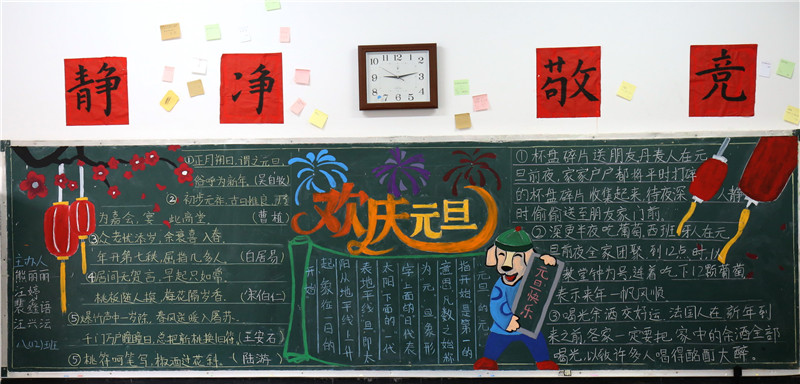 静
净
敬
竞
欢庆元旦
①正月朔日,谓之元旦,
俗呼为新年。(吴自牧
②初步元祚,古日惟良,
为嘉会,宴此高堂。
(曹植)
③众老忧添岁,余衰喜入春。
年开第七秩,屈指几多人。
(白居易)
④居间无贺客,早起只如常。
桃板随人换,梅花隔岁香。
(宋伯仁)
⑤爆竹声中一岁除,春风送暖入屠苏。
千门万户曈曈日,总把新桃换旧符。(王安石)
(陆游)
主办人
熊丽丽
汪婷
裴鑫语
汪兴江
八(12)班
元旦的元
指开始是第一的
意思凡数之始称
为元旦象形
字上面的日代表
太阳下面的一代
表地平线旦即太
阳从地平线上升
起象征一日的
开始
元旦快乐
①杯盘碎片送朋友丹麦人在元
旦前夜,家家户户都将平时打碎
的杯盘碎片收集起来,待夜深人静
时偷偷送至朋友家门前。
②深更半夜吃葡萄,西班牙人在元
旦前夜全家团聚,到12点时,以
教堂钟为号,过着吃下12颗葡萄
表示来年一帆风顺
③喝光余酒交好运,法国人在新年到
来之前,各家一定要把家中的余酒全部
喝光,以致许多人喝得酩酊大醉。